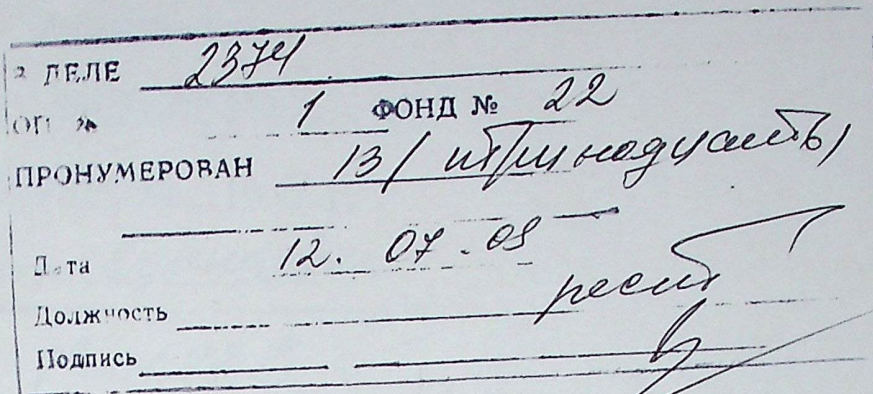 В ДЕЛЕ 2374
ОП № 1 ФОНД № 22
ПРОНУМЕРОВАН 13 / тринадцать /
Дата 12. 07. 09
Должность рест
Подпись